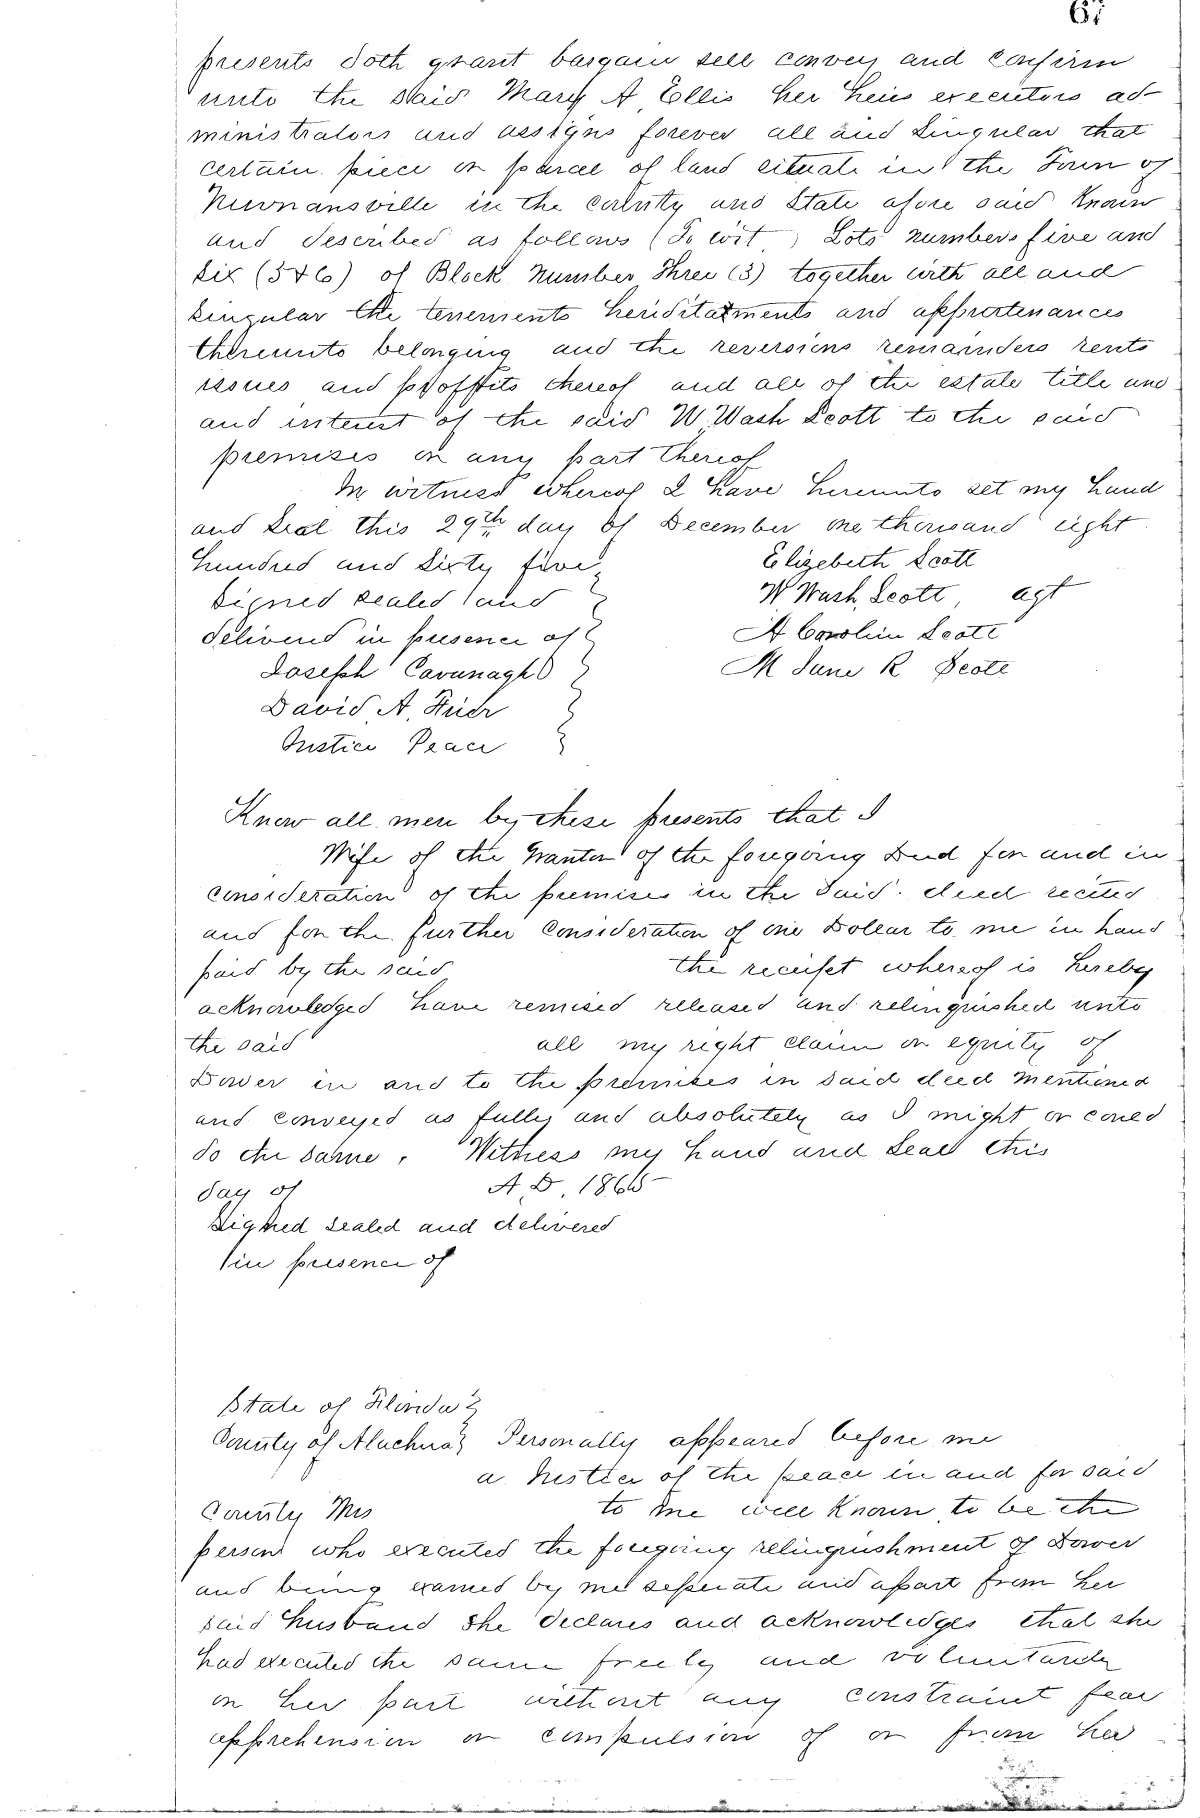 67
presents doth grant bargain sell convey and confirm
unto the said Mary A Ellis her heirs executors ad-
ministrators and assigns forever all and Singular that
certain piece or parcel of land situate in the Town of
Newnansville in the County and State afore said Known
and described as follows (To wit) Lots numbers five and
Six (5&6) of Block Number Three (3) together with all and
Singular the tenements heriditatments and appurtenances
thereunto belonging and the reversions remainders rents
issues and proffits thereof and all of the estate title and
and interest of the said W. Wash Scott to the said
premises or any part thereof
In witness whereof I have hereunto set my hand
and Seal this 29th day of December one thousand eight
hundred and Sixty five
Elizebeth Scott
Signed sealed and
W Wash. Scott, agt
delivered in presence of
A Carolin Scott
Joseph Cavanagh
M Jane R Scott
David A.
Justice Peace
Know all men by these presents that I
Wife of the Grantor of the foregoing Deed for and in
consideration of the premises in the Said deed recited
and for the further Consideration of one Dollar to me in hand
paid by the said the receipt whereof is hereby
acknowledged have remised released and relinquished unto
the said all my right claim or equity of
Dower in and to the premises in said deed mentioned
and conveyed as fully and absolutely as I might or could
do the same. Witness my hand and Seal this
day of A.D. 1865
Signed sealed and delivered
in presence of
State of Florida
County of Alachua Personally appeared before me
a Justice of the peace in and for said
County Mrs to me well Known to be the
person who executed the foregoing relinquishment of Dower
and being examed by me seperate and apart from her
said husband she declares and acknowledges that she
had executed the same freely and voluntarily
on her part without any constraint fear
apprehension or compulsion of or from her